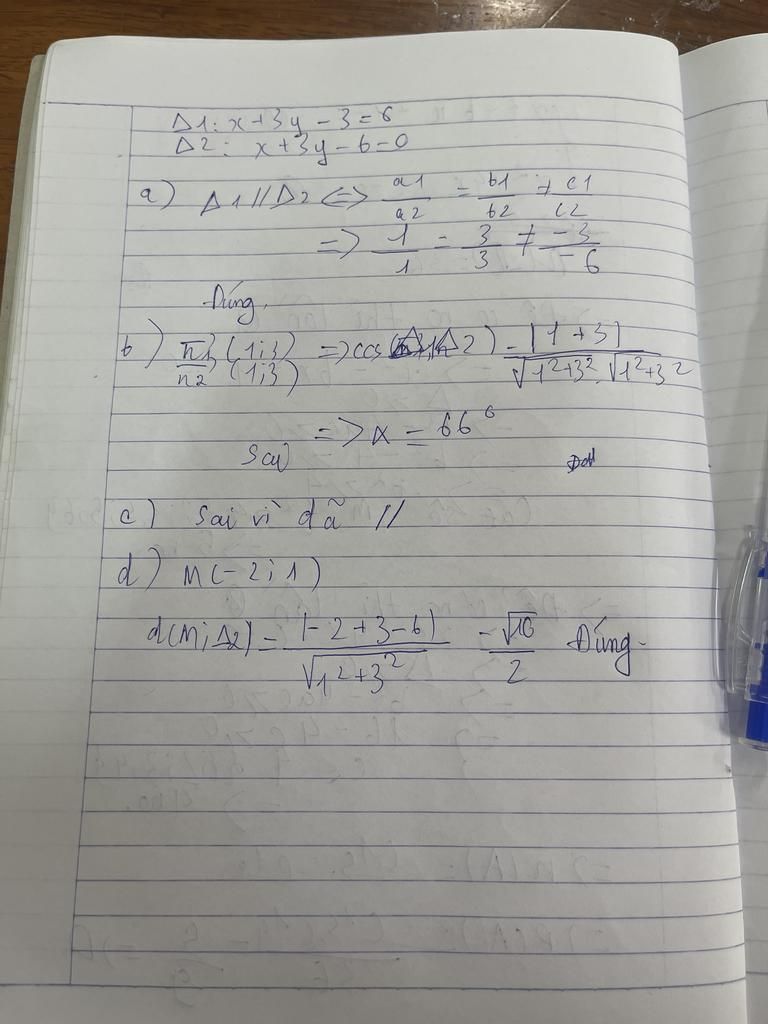 Δ1: x+3y-3=6
Δ2: x+3y-6=0
a) Δ1//Δ2 <=> a1/a2 = b1/b2 ≠ c1/c2
=> 1/1 = 3/3 ≠ -3/-6
Đúng.
b) n1 (1;3) => cos(Δ1;Δ2) = |1+3|/√1²+3².√1²+3²
n2 (1;3)
=> α = 66°
Sai
c) Sai vì dã //
d) M(-2;1)
d(M;Δ2) = |-2+3-6|/√1²+3² = √10/2 Đúng.